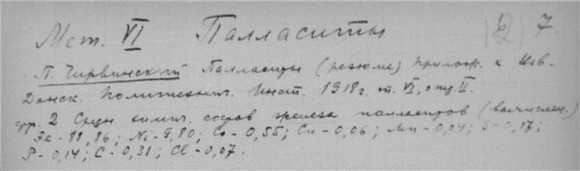 Мет. VI Палласиты (2) 7.
П. Чирвинский Палласиты (резюме) Прилож. к Изв.
Донск. Политехнич. Инст. 1918г. т. VI, отд. II.
стр. 2 Средн химич. состав железа палласитов (вычислен.)
Fe - 88,86; Ni - 9,80; Co - 0,55; Cu - 0,06; Mn - 0,04; S - 0,17;
P - 0,14; C - 0,31; Cl - 0,07.